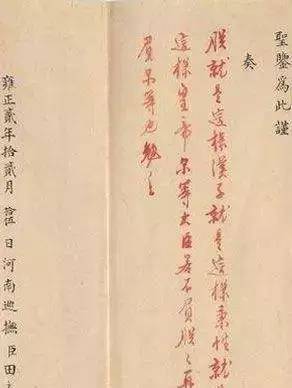 聖鑒爲此謹
奏
朕就是這樣漢子就是這樣秉性就
這樣皇帝尔等大臣若不負朕朕再
負尔等也勉之
雍正貳年拾貳月 拾伍 日河南巡撫臣田